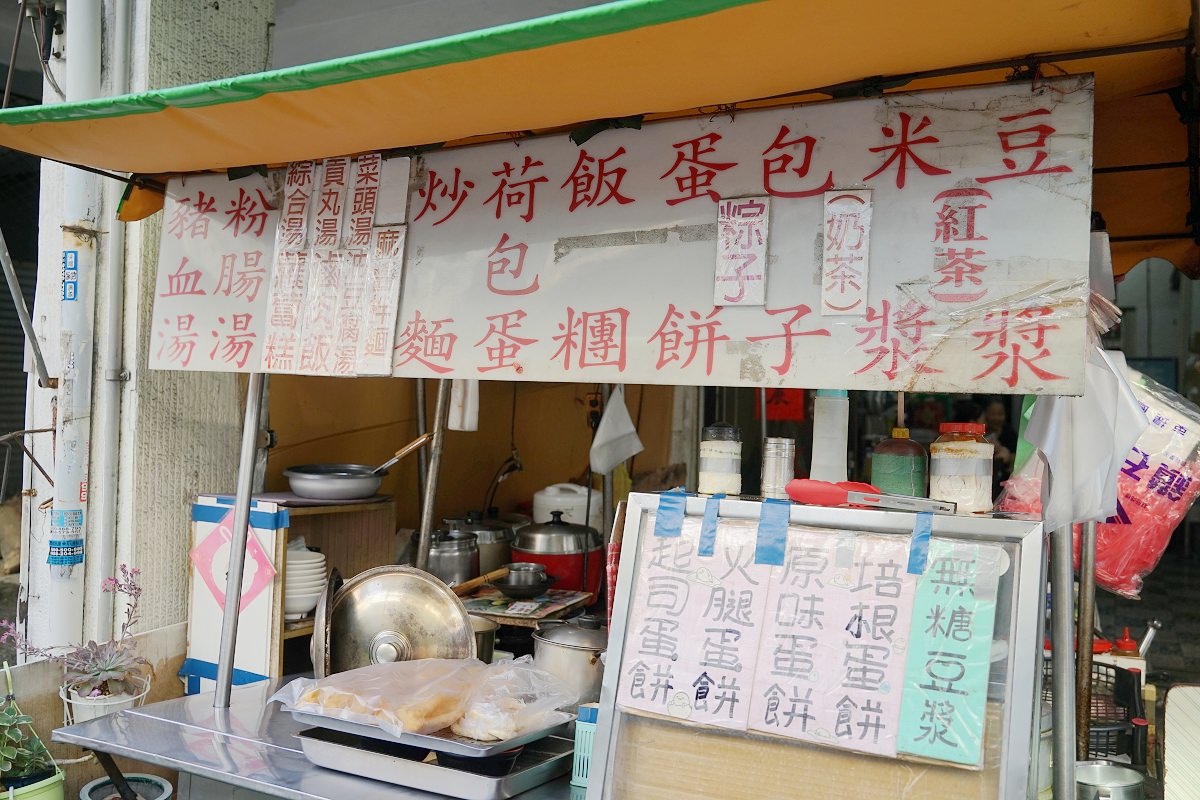 豆漿
(紅茶)
米漿
(奶茶)
包子
粽子
蛋餅
飯糰
荷包蛋
炒麵
菜頭湯
油豆腐湯
貢丸湯
滷肉飯
綜合湯
粉腸湯
豬血湯
無糖豆漿
培根蛋餅
原味蛋餅
火腿蛋餅
起司蛋餅